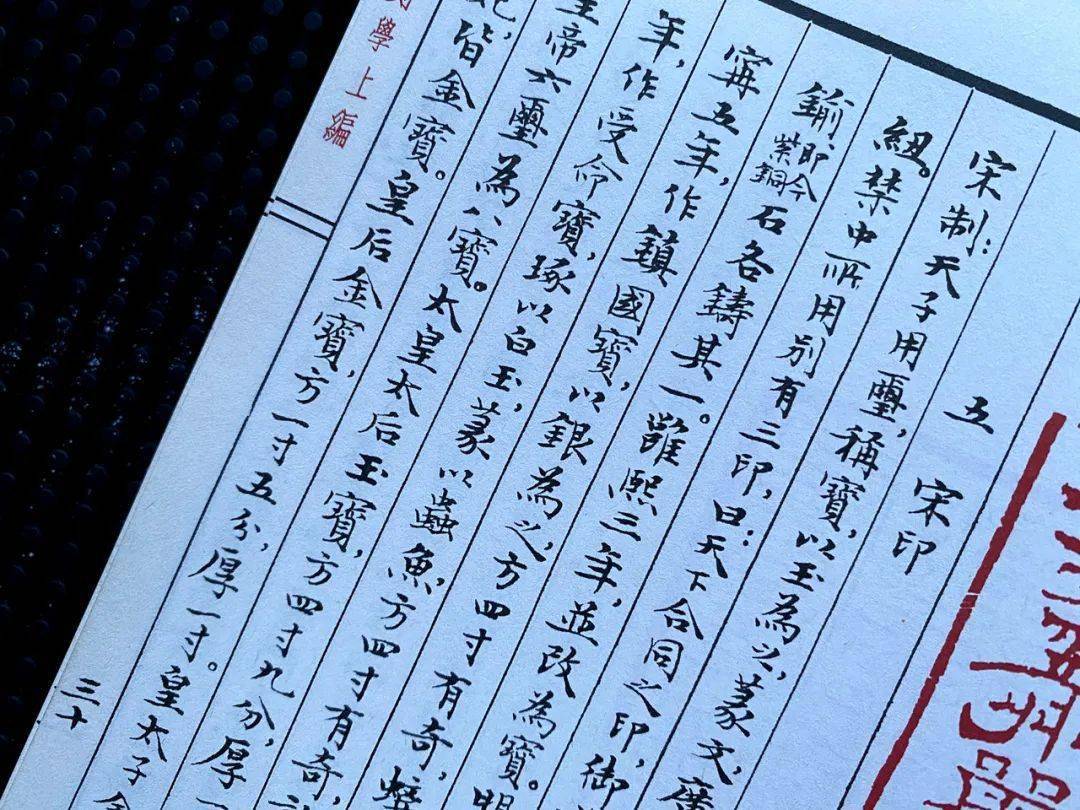 五 宋印
宋制：天子用璽，稱寶，以玉為之，篆文，廣
紐。禁中所用別有三印，曰：天下合同之印，御
鍮即今紫銅石各鑄其一。雝熙三年，並改為寶。
甯五年，作鎮國寶，以銀為之，方四寸有奇，
年，作受命寶，琢以白玉，篆以蟲魚，方四寸有奇，
帝六璽為八寶。太皇太后玉寶，方四寸九分，厚
皆金寶。皇后金寶，方一寸五分，厚一寸。皇太子金
學上編
三十